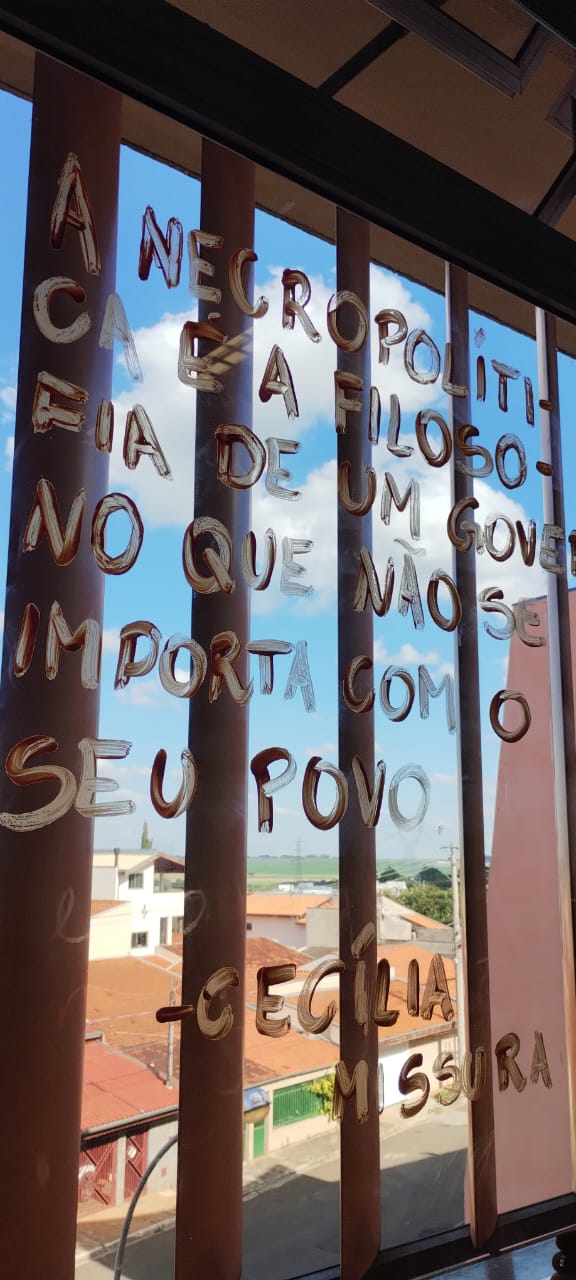 A NECROPOLÍTI-
CA É A FILOSO-
FIA DE UM GOVER
NO QUE NÃO SE
IMPORTA COM O
SEU POVO
-CECÍLIA
MISSURA